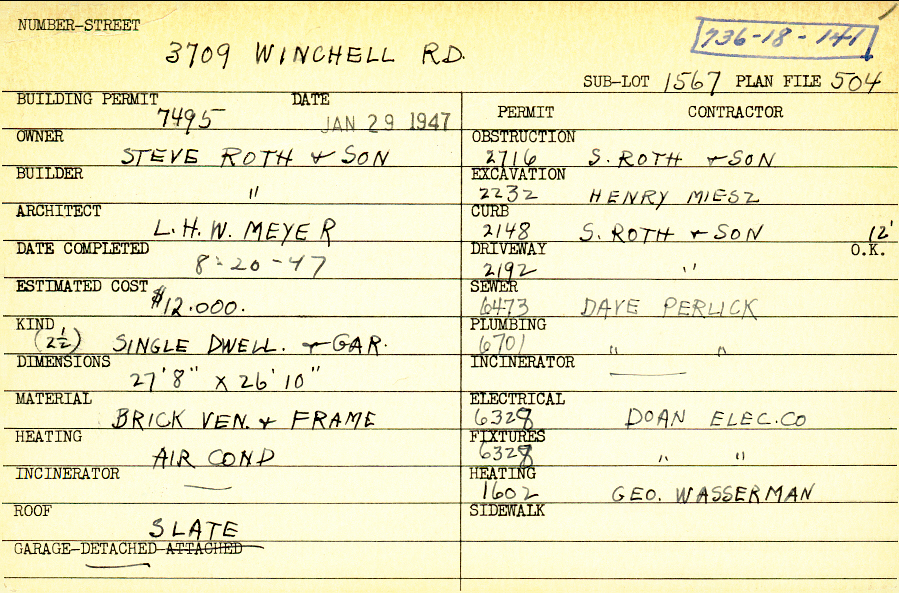 NUMBER-STREET
3709 WINCHELL RD.
736-18-141
SUB-LOT 1567 PLAN FILE 504
BUILDING PERMIT DATE
7495 JAN 29 1947
PERMIT CONTRACTOR
OWNER
STEVE ROTH + SON
BUILDER
"
ARCHITECT
L. H. W. MEYER
DATE COMPLETED
8-20-47
ESTIMATED COST
$12.000.
KIND
(2½) SINGLE DWELL. + GAR.
DIMENSIONS
27'8" X 26'10"
MATERIAL
BRICK VEN. + FRAME
HEATING
AIR COND
INCINERATOR
—
ROOF
SLATE
GARAGE-DETACHED-ATTACHED
OBSTRUCTION
2716 S. ROTH + SON
EXCAVATION
2232 HENRY MIESZ
CURB
2148 S. ROTH + SON 12'
DRIVEWAY O.K.
2192 "
SEWER
6473 DAVE PERLICK
PLUMBING
6701 " "
INCINERATOR
—
ELECTRICAL
6328 DOAN ELEC.CO
FIXTURES
6328 " "
HEATING
1602 GEO. WASSERMAN
SIDEWALK